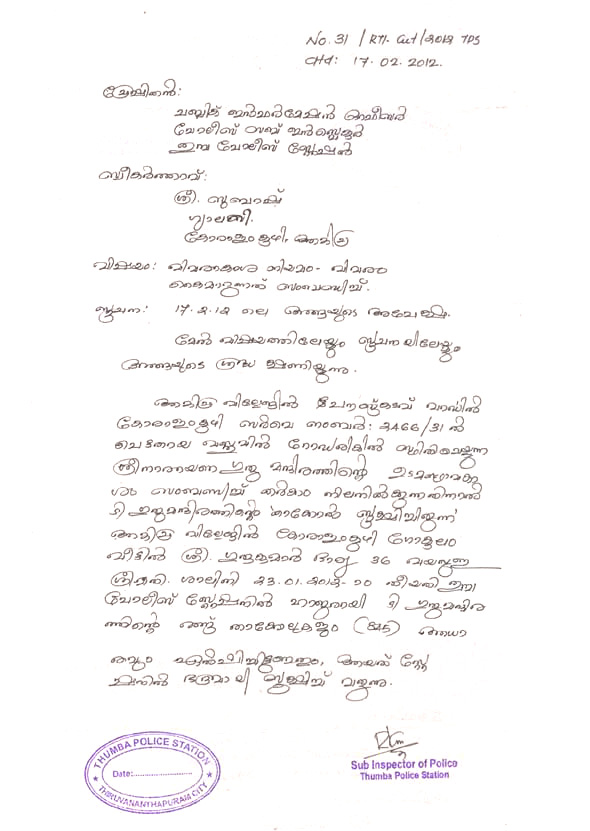 No. 31 / RTI- Act / 2012 TPS
Ctd: 17.02.2012.
പ്രേഷിതൻ:
പബ്ലിക് ഇൻഫർമേഷൻ ഓഫീസർ
പോലീസ് സബ് ഇൻസ്പെക്ടർ
തുമ്പ പോലീസ് സ്റ്റേഷൻ
സ്വീകർത്താവ്:
ശ്രീ. സുഭാഷ്
വിഷയം: വിവരാവകാശ നിയമം - വിവരം
കൈമാറുന്നത് സംബന്ധിച്ച്.
സൂചന: 17.2.12 ലെ അങ്ങയുടെ അപേക്ഷ.
മേൽ വിഷയത്തിലേയ്ക്കും സൂചനയിലേയ്ക്കും
അങ്ങയുടെ ശ്രദ്ധ ക്ഷണിയ്ക്കുന്നു.
വില്ലേജിൽ വാർഡിൽ
സർവെ നമ്പർ: 2466/31 ൽ
വസ്തുവിൽ റോഡരികിൽ സ്ഥിതിചെയ്യുന്ന
ശ്രീനാരായണ ഗുരു മന്ദിരത്തിന്റെ ഉടമസ്ഥാവകാ
ശം സംബന്ധിച്ച് തർക്കം നിലനിൽക്കുന്നതിനാൽ
ടി ഗുരുമന്ദിരത്തിന്റെ താക്കോൽ സൂക്ഷിച്ചിരുന്ന
വില്ലേജിൽ ഗോകുലം
വീട്ടിൽ ശ്രീ. ഭാര്യ 36 വയസ്സുള്ള
ശ്രീമതി. ശാലിനി 23.01.2012-ാം തീയതി തുമ്പ
പോലീസ് സ്റ്റേഷനിൽ ഹാജരായി ടി ഗുരുമന്ദിര
ത്തിന്റെ രണ്ട് താക്കോലുകളും
ഏൽപിച്ചിട്ടുള്ളതും, ആയത് സ്റ്റേ
ഷനിൽ ഭദ്രമായി സൂക്ഷിച്ച് വരുന്നു.
THUMBA POLICE STATION
Date:....................
THIRUVANANTHAPURAM CITY
Sub Inspector of Police
Thumba Police Station